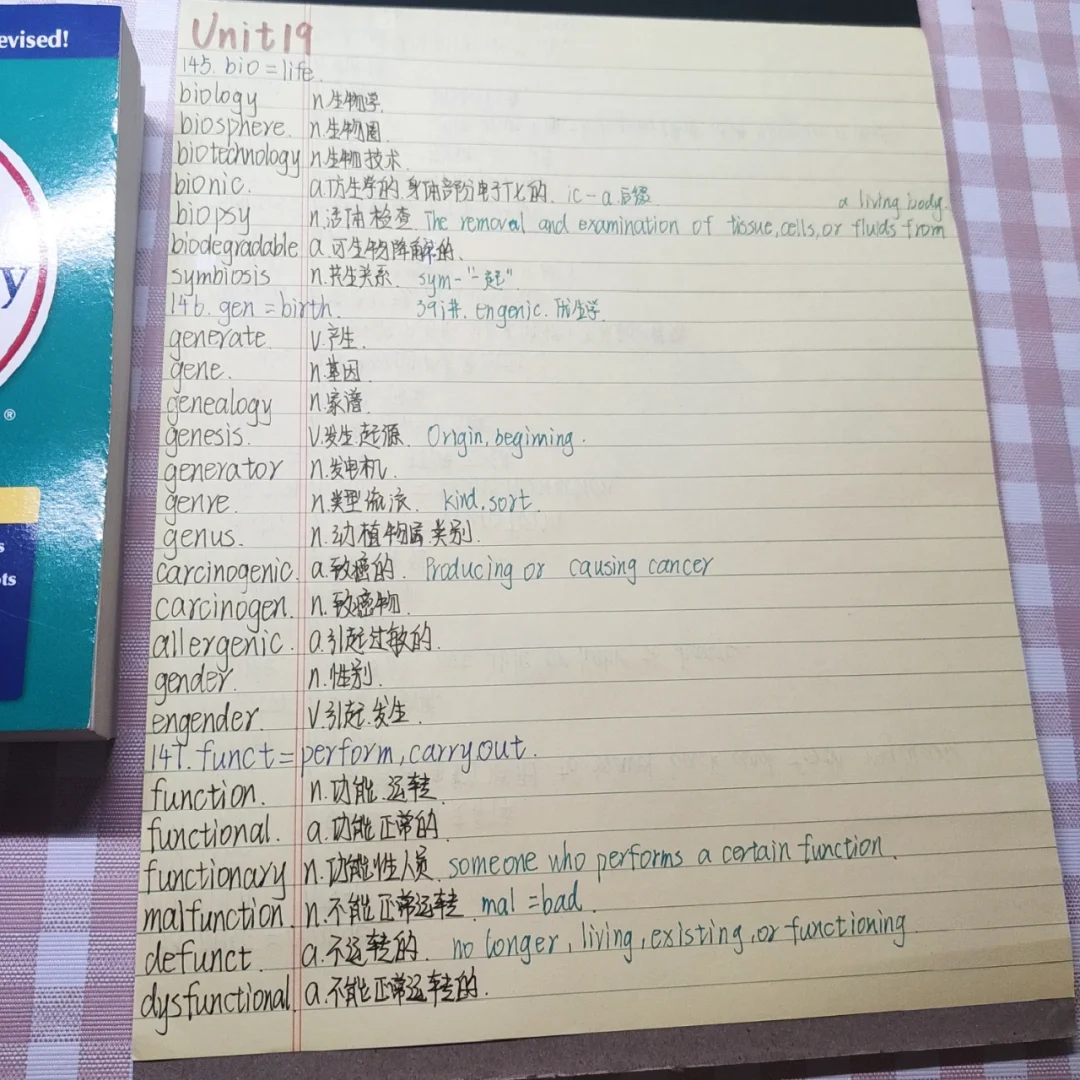 evised!
y
®
s
ots
Unit 19
145. bio = life.
biology n.生物学.
biosphere. n.生物圈.
biotechnology n.生物技术.
bionic. a.仿生学的.身体部分电子化的. ic-a.后缀
a living body.
biopsy n.活体检查 The removal and examination of tissue,cells,or fluids from
biodegradable a.可生物降解的.
symbiosis n.共生关系. sym-"一起"
146. gen = birth. engenic. 优生学.
generate. v.产生.
gene. n.基因
genealogy n.家谱.
genesis. v.发生.起源. Origin, begiming.
generator n.发电机.
genre. n.类型流派. kind.sort.
genus. n.动植物属.类别.
carcinogenic. a.致癌的. Producing or causing cancer
carcinogen. n.致癌物.
allergenic. a.引起过敏的.
gender. n.性别.
engender. v.引起.发生.
147. funct = perform, carry out.
function. n.功能.运转.
functional. a.功能正常的.
functionary n.功能性人员. someone who performs a certain function.
malfunction. n.不能正常运转. mal = bad.
defunct. a.不运转的. no longer, living, existing, or functioning.
dysfunctional. a.不能正常运转的.